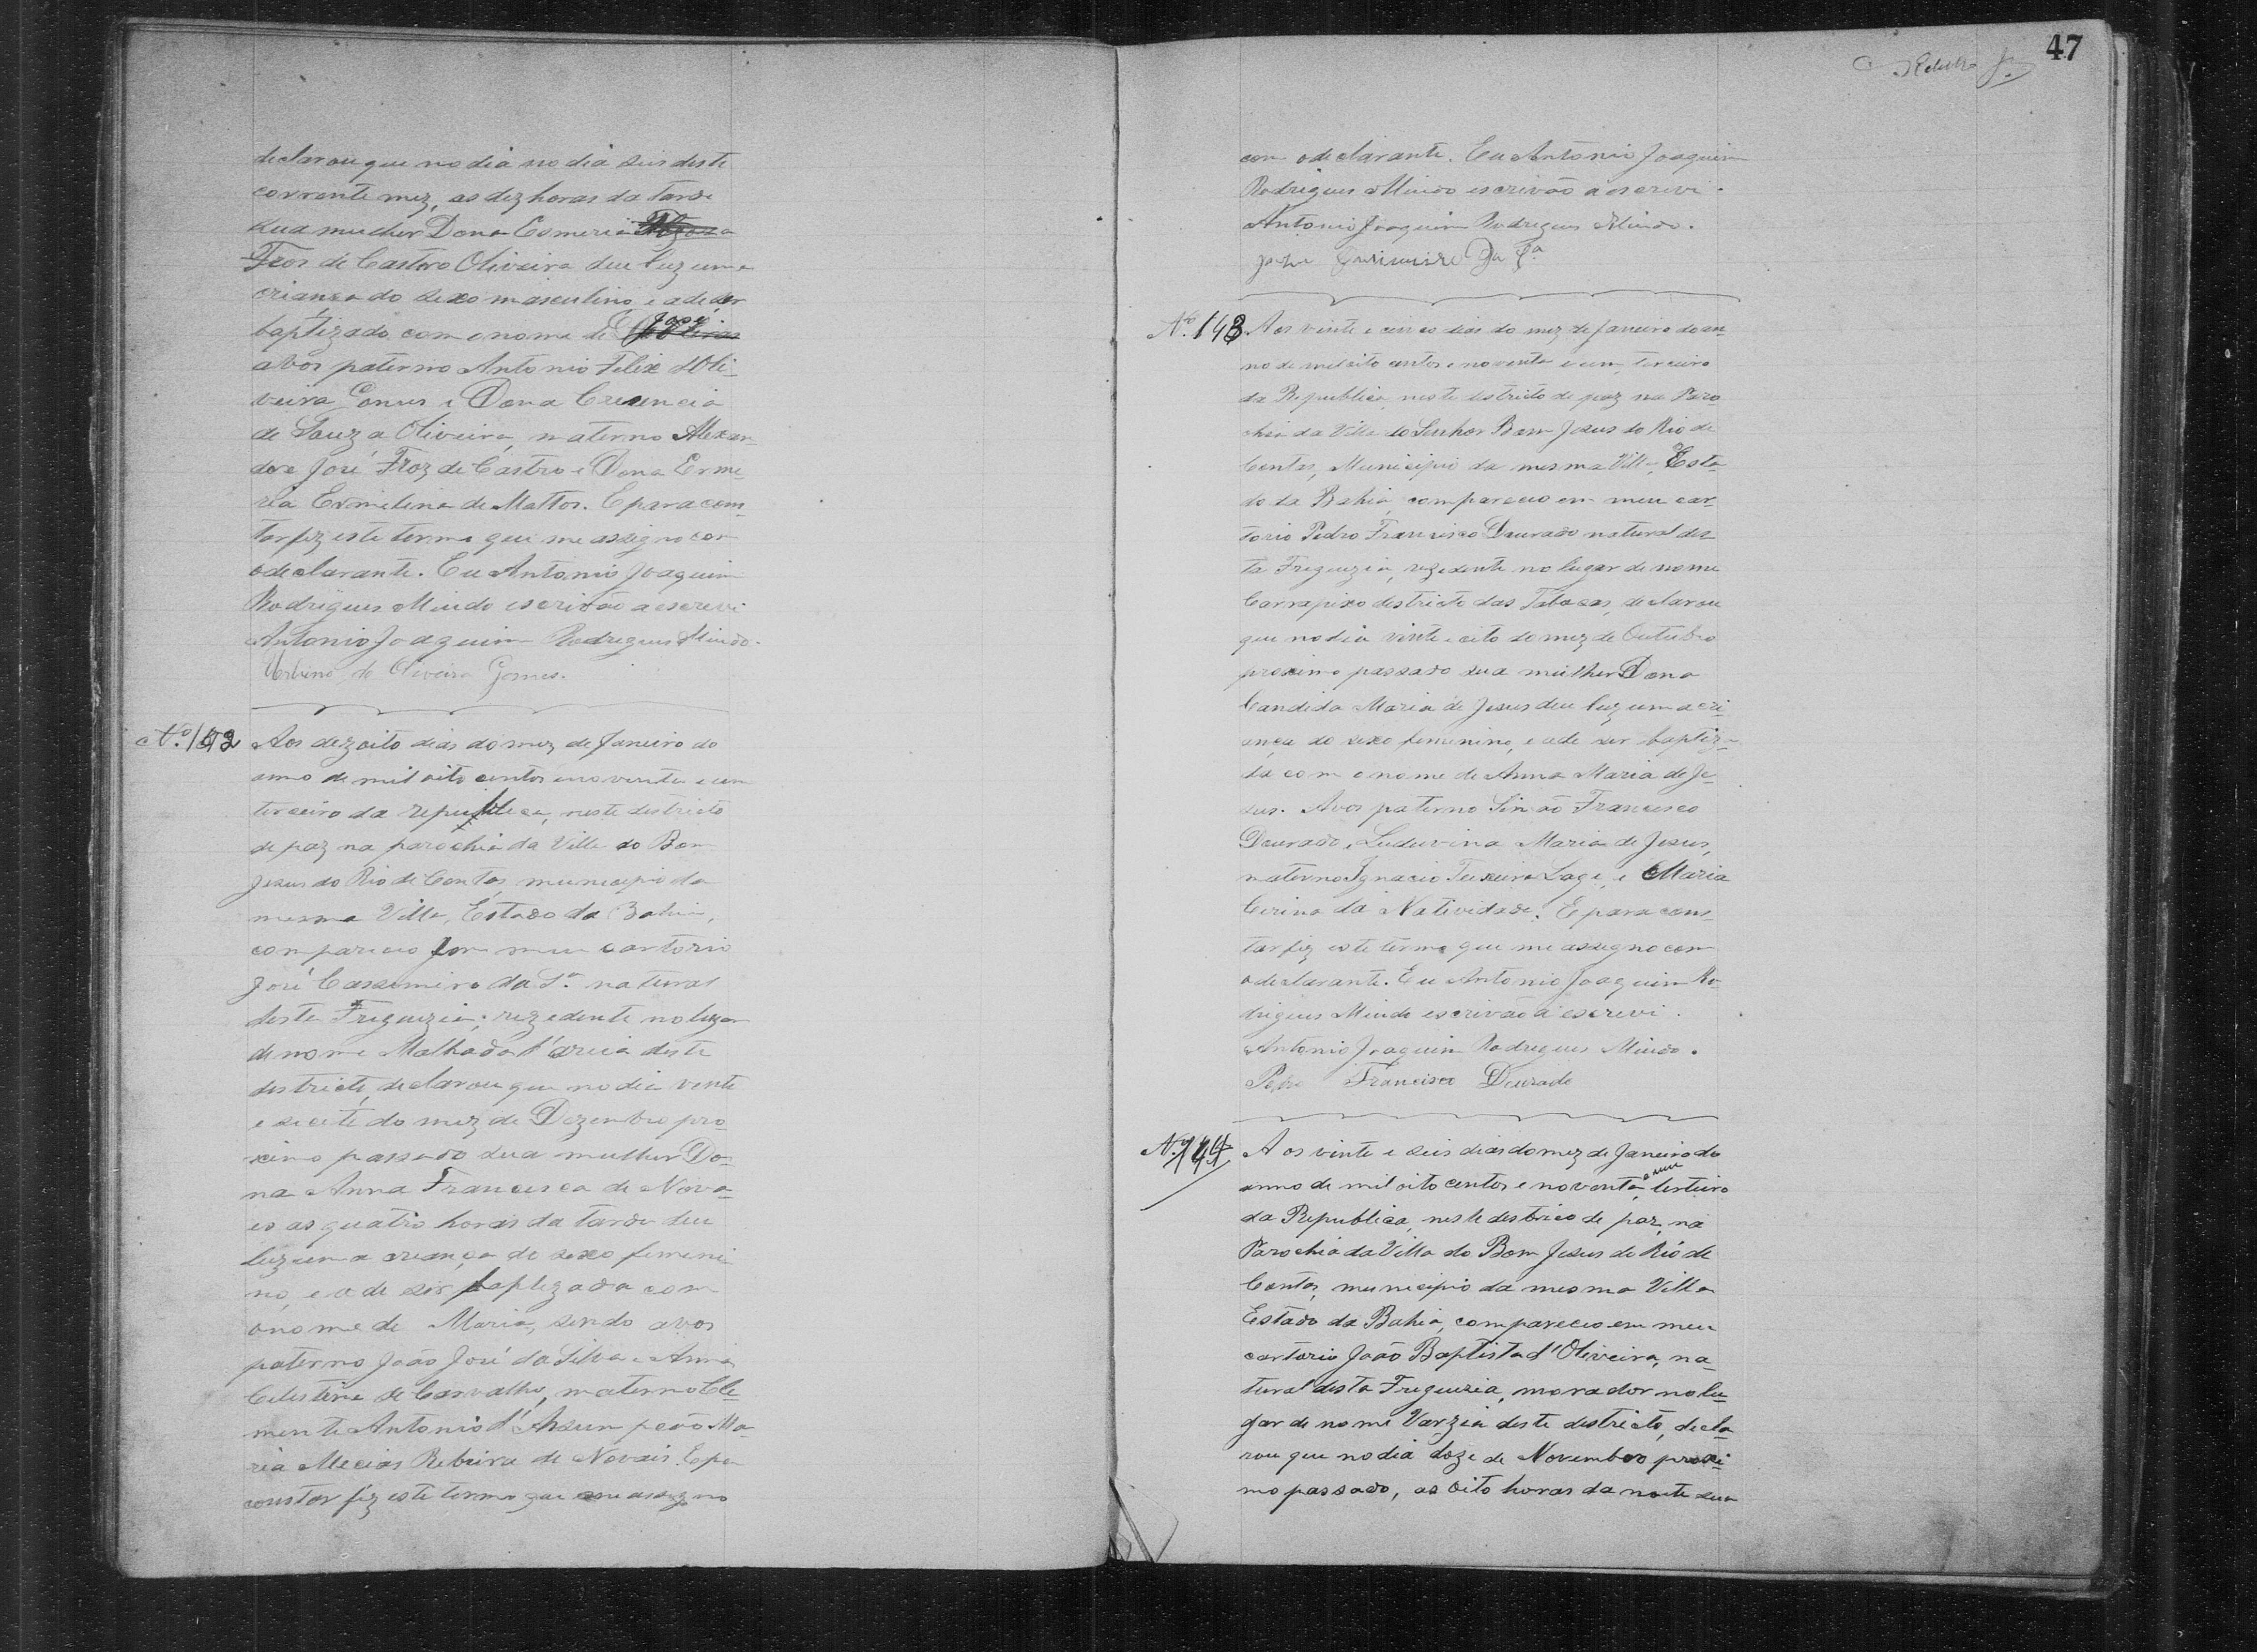 declarou que no dia no dia seis deste
corrente mez, as dez horas da tarde
sua mulher Dona Esmeria
Froz de Castro Oliveira deu luz uma
criança do sexo masculino e ade ser
baptizado com o nome de José
avos paterno Antonio Felix d'Oli-
veira Gomes e Dona Crecencia
de Souza Oliveira, materno Alexan-
dre José Froz de Castro e Dona Esme-
ria Ermelina de Mattos. E para cons-
tar fiz este termo que me assigno com
o declarante. Eu Antonio Joaquim
Rodrigues Mindo escrivão a escrevi
Antonio Joaquim Rodrigues Mindo.
Urbino de Oliveira Gomes.
Nº 142 Aos dezoito dias do mez de Janeiro do
anno de mil oito centos e noventa e um
terceiro da republica, neste destricto
de paz na parochia da Villa do Bom
Jesus do Rio de Contas, municipio da
mesma Villa, Estado da Bahia,
compareceo em meu cartorio
José Cassemiro da Sª natural
desta Freguezia; rezedente no lugar
de nome Malhada d'areia deste
destricto, declarou que no dia vente
e secete do mez de Dezembro pro-
ximo passado sua mulher Do-
na Anna Francisca de Nova-
es as quatro horas da tarde deu
luz uma creança do sexo femeni
no, e a de ser baptezada com
o nome de Maria, sendo avos
paterno João José da Silva e Anna
Celestina de Carvalho, materno Cle-
mente Antonio d'Asumpção Ma-
ria Mecias Rebeira de Novais. E pa
constar fiz este termo que me assigno
47
com o declarante. Eu Antonio Joaquim
Rodrigues Mindo escrivão a escrevi.
Antonio Joaquim Rodrigues Mindo.
José Da Sª
Nº 143 Aos vinte e cinco dias do mez de Janeiro do an-
no de mil oito centos e noventa e um, terceiro
da Republica, neste destricto de paz na Paro-
chia da Villa do Senhor Bom Jesus do Rio de
Contas, Municipio da mesma Villa, Esta-
do da Bahia, compareceo em meu car-
torio Pedro Francisco Dourado natural des-
ta Freguezia, rezedente no lugar de nome
Carrapixo destricto das Tabocas, declarou
que no dia vinte e oito do mez de Outubro
proximo passado sua mulher Dona
Candida Maria de Jesus deu luz uma cri-
ança do sexo femenino, e ade ser baptiza-
da com o nome de Anna Maria de Je-
sus. Avos paterno Simão Francisco
Dourado, e Luduvina Maria de Jesus,
materno Ignacio Teixeira Lage, e Maria
Cerina da Natividade. E para cons
tar fiz este termo que me assegno com
o declarante. Eu Antonio Joaquim Ro-
drigues Mindo escrivão a escrevi.
Antonio Joaquim Rodrigues Mindo.
Pedro Francisco Dourado
Nº 144 Aos vinte e seis dias do mez de Janeiro do
anno de mil oito centos e noventa e um, terceiro
da Republica, neste destrico de paz, na
Parochia da Villa do Bom Jesus do Rio de
Contas, municipio da mesma Villa
Estado da Bahia, compareceo em meu
cartorio João Baptista d'Oliveira, na-
tural desta Freguezia, morador no lu-
gar de nome Varzia deste destricto, decla-
rou que no dia doze de Novembro proxi-
mo passado, as oito horas da noite sua